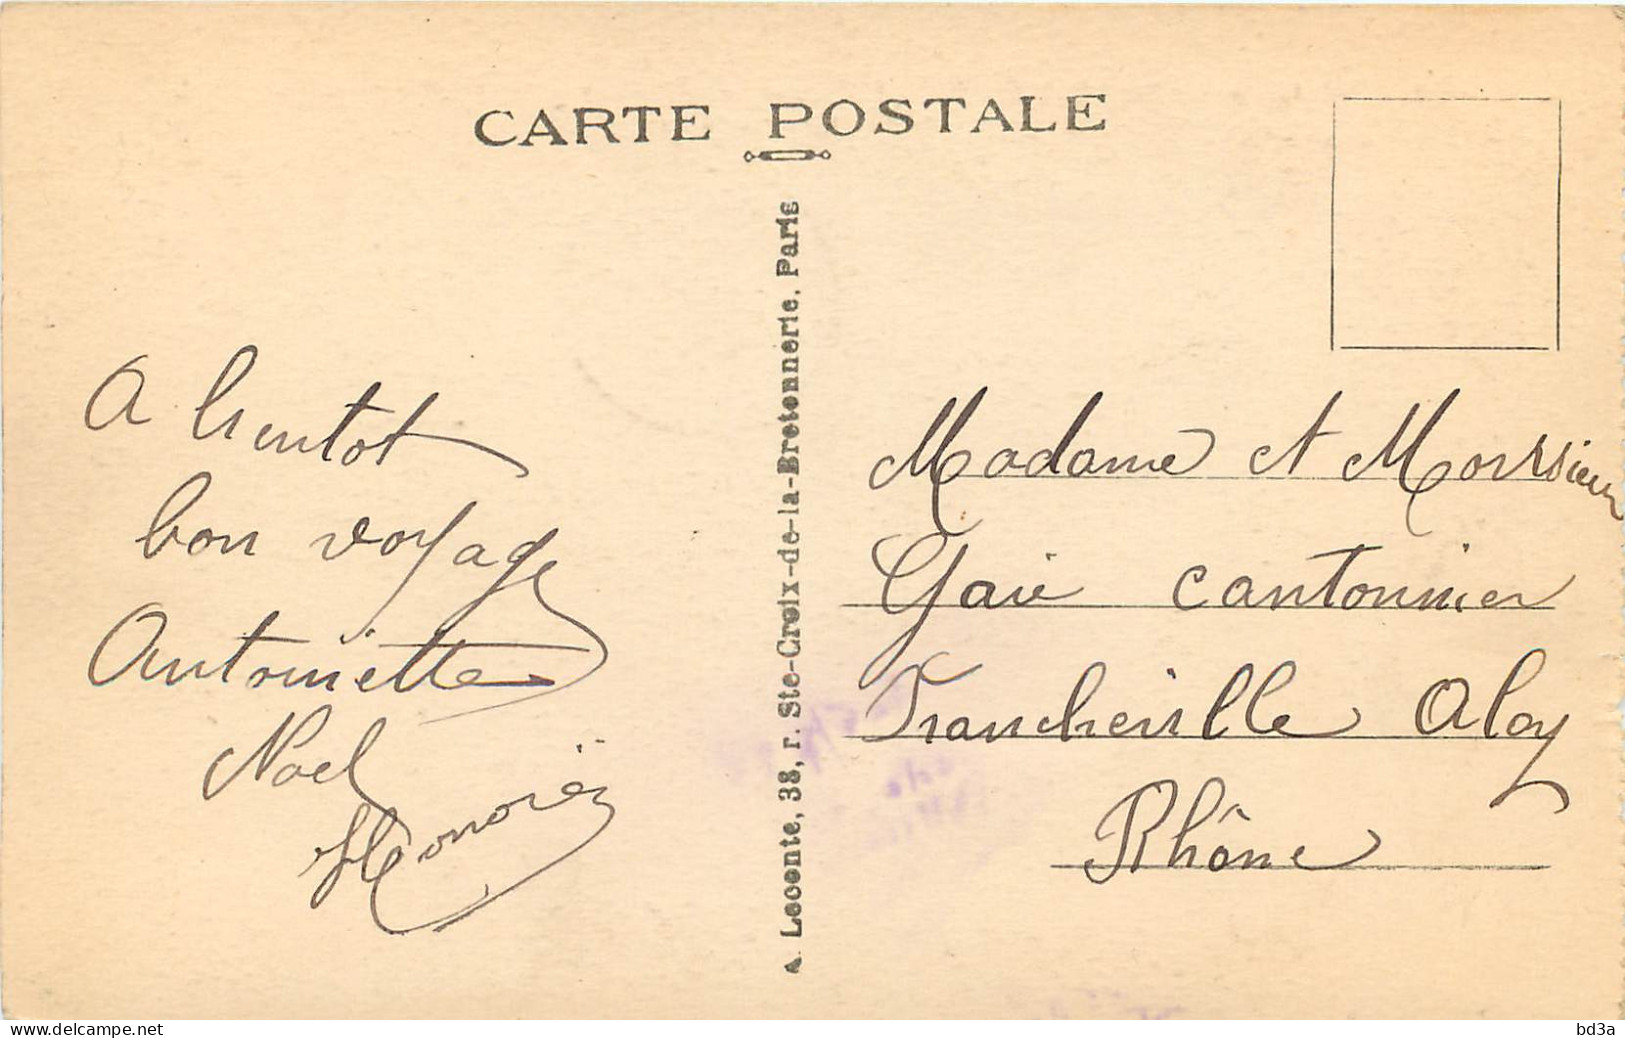 CARTE POSTALE
A bientot
bon voyage
Antoinette
Noël
Honorée
A. Leconte, 38, r. Ste-Croix-de-la-Bretonnerie, Paris
Madame et Monsieur
Gaie cantonnier
Francheville Alay
Rhône
delcampe.net
bd3a